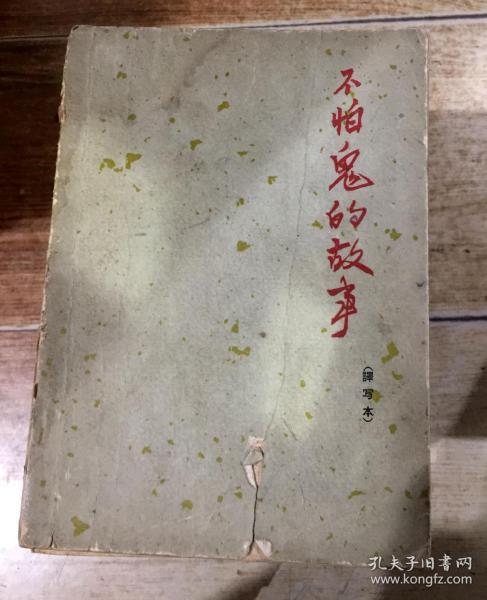 不怕鬼的故事
（譯写本）
孔夫子旧书网
www.kongfz.com